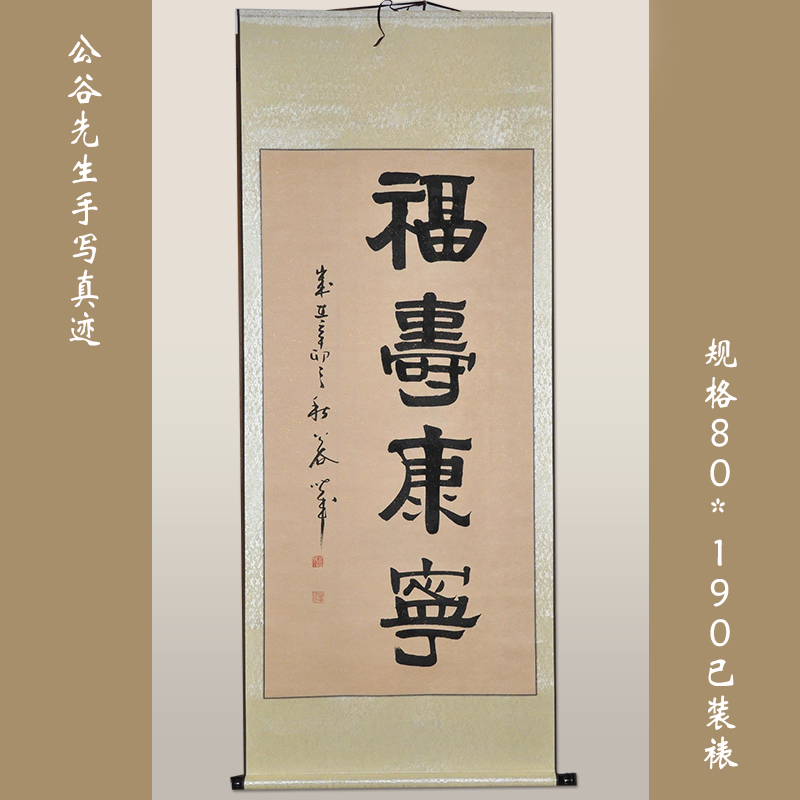 公谷先生手写真迹
福壽康寧
歲在辛卯之秋
规格80*190已装裱